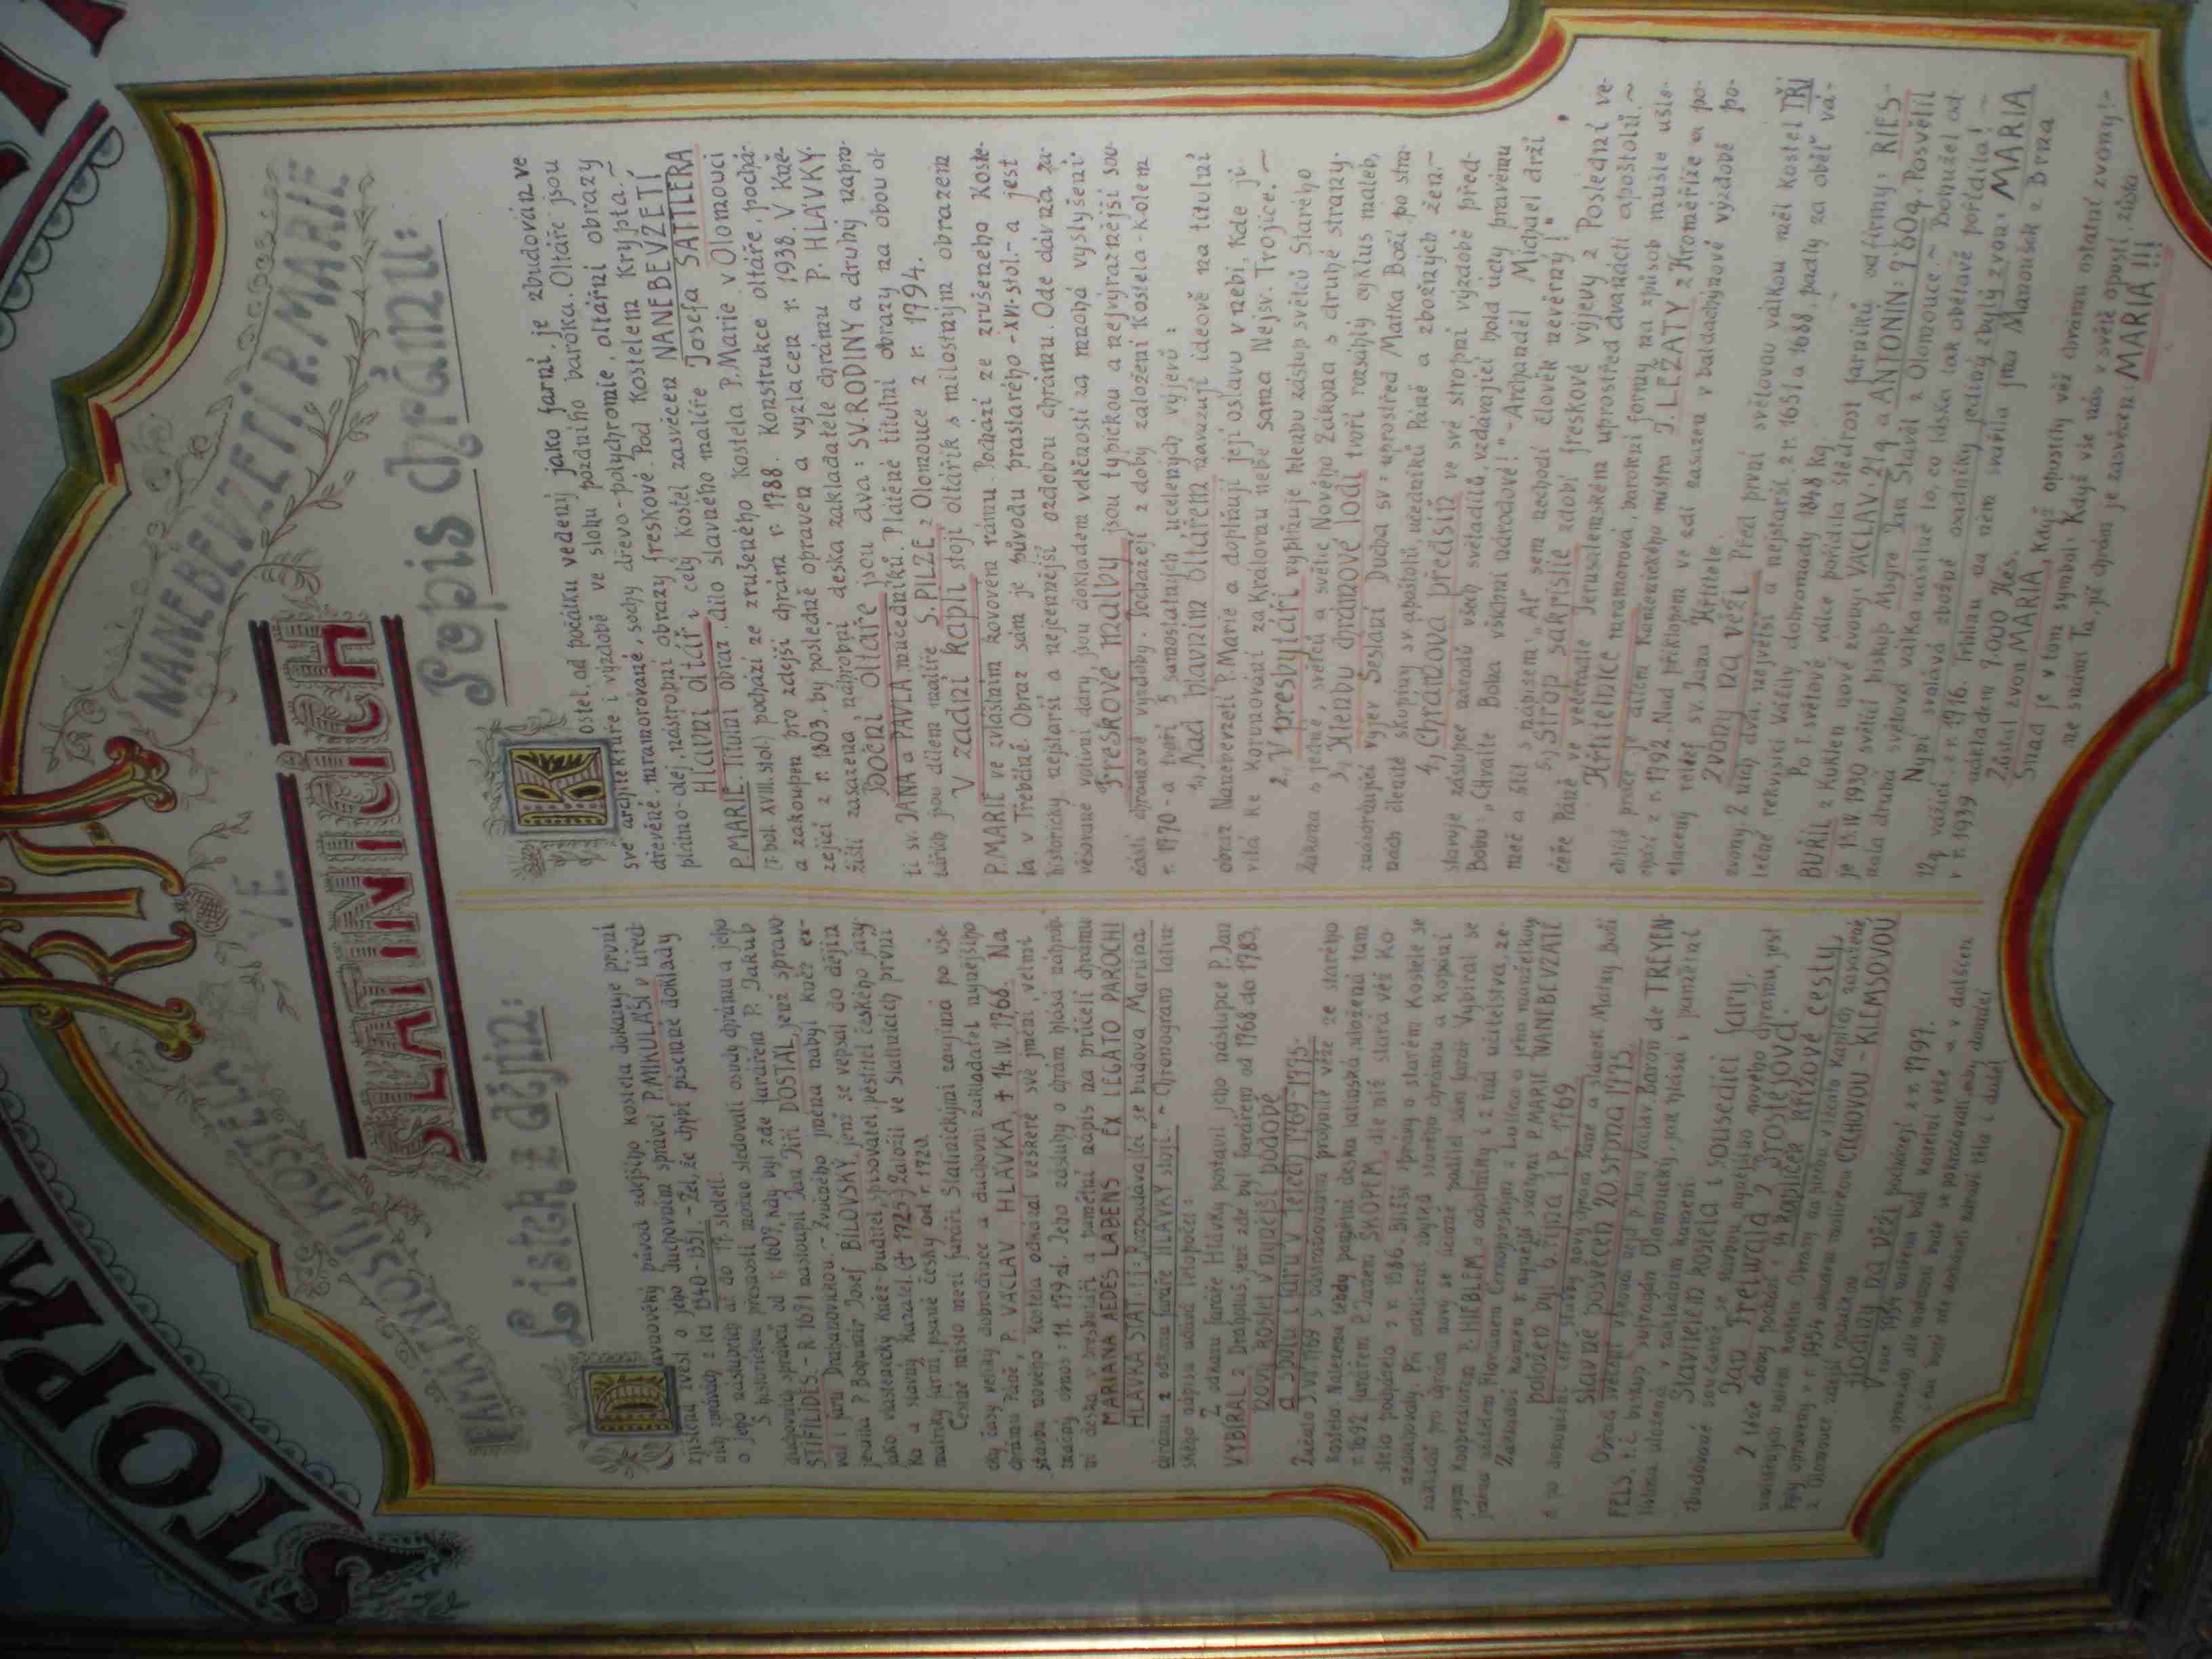 TOPM
PAMÁTNOSTI KOSTELA VE NANEBEVZETÍ P. MARIE
SLATINICÍCH
Lístek z dějin:
Dávnověký původ zdejšího kostela dokazuje první
zjištěná zvěst o jeho duchovním správci P. MIKULÁŠI v úřed-
ních zprávách z let 1340-1351. - Žel, že chybí písemné doklady
o jeho nástupcích až do 17. století.
S historickou přesností možno sledovati osudy chrámu a jeho
duchovních správců od r. 1609, kdy byl zde farářem P. Jakub
STIFILIDES. - R. 1691 nastoupil Jan Jiří DOSTAL, jenž spravo-
val i faru Drahanovickou. - Zvučného jména nabyl kněz ex-
jesuita P. Bohumír Josef BÍLOVSKÝ, jenž se vepsal do dějin
jako vlastenecký kněz-buditel, spisovatel, pěstitel českého jazy-
ka a slavný kazatel. († 1725) Založil ve Slatinicích první
matriky farní, psané česky od r. 1720.
Čestné místo mezi faráři Slatinickými zaujímá po vše-
cky časy veliký dobrodinec a duchovní zakladatel nynějšího
chrámu Páně, P. VÁCLAV HLÁVKA † 14. IV. 1766. Na
stavbu nového kostela odkázal veškeré své jmění, velmi
značný obnos: 11.179 zl. Jeho zásluhy o chrám hlásá náhrob-
ní deska v presbytáři a pamětní nápis na průčelí chrámu
MARIANA AEDES LABENS EX LEGATO PAROCHI
HLAVKA STAT. || : Rozpadávající se budova Mariina
chrámu z odkazu faráře HLÁVKY stojí." ~ Chronogram latin-
ského nápisu udává letopočet:
Z odkazu faráře Hlávky postavil jeho nástupce P. Jan
VYBÍRAL z Drahotuš, jenž zde byl farářem od 1768 do 1783,
nový kostel v nynější podobě
a spolu i faru v letech 1769-1773.
Začalo s VII. 1769 s odstraňováním
kostela. Nalezena tehdy pamětní deska latinská uložená tam
r. 1692 farářem P. Janem ŠKOPEM, dle níž stará věž ko-
stela pocházela z r. 1586. Bližší zprávy o starém kostele se
nedochovaly. Při odklizení zbytků starého chrámu a kopání
základů pro chrám nový se účinně podílel sám farář Vybíral se
svým kooperátorem P. HEBLEM
Základní kámen k nynější svatyni P. MARIE NANEBEVZATÉ
položen byl 6. října L.P. 1769
a po dokončení celé stavby nový chrám Páně a stánek Matky Boží
Slavně posvěcen 20. srpna 1775.
Obřad svěcení vykonal nejd. P. Jan Václav, Baron de TREYEN-
FELS, t.č. biskup suffragán Olomoucký, jak hlásá i pamětní
listina, uložená v základním kameni.
Stavitelem kostela i sousedící fary,
zbudované současně se stavbou nynějšího nového chrámu, jest
Jan Freiwald z Prostějova.
Z téže doby pochází i 14 kapliček křížové cesty,
umístěných kolem kostela. Obrazy do plechu v těchto kaplích zasazené
byly opraveny v r. 1954 akadem. malířkou ČECHOVOU-KLEMSOVOU
z Olomouce
Hodiny na věži pocházejí z r. 1797.
V roce 1954
Sopis chrámu:
Kostel, od počátku vedený jako farní, je zbudován ve
své architektuře i výzdobě ve slohu pozdního baroka. Oltáře jsou
dřevěné, mramorované, sochy dřevo-polychromie, oltářní obrazy
plátno-olej, nástropní obrazy freskové. Pod kostelem krypta. ~
Hlavní oltář i celý kostel zasvěcen NANEBEVZETÍ
P. MARIE. Titulní obraz, dílo slavného malíře Josefa SATTLERA
(7. pol. XVIII. stol.) pochází ze zrušeného kostela P. Marie v Olomouci
a zakoupen pro zdejší chrám r. 1788. Konstrukce oltáře, pochá-
zející z r. 1803, byla posledně opraven a vyzlacen r. 1938. V kně-
žišti zasazena náhrobní deska zakladatele chrámu P. HLÁVKY.
Boční oltáře jsou dva: SV. RODINY a druhý napro-
ti sv. JANA a PAVLA mučedníků. Plátěné titulní obrazy na obou ol-
tářích jsou dílem malíře S. PILZE z Olomouce z r. 1794.
V zadní kapli stojí oltářík s milostným obrazem
P. MARIE ve zvláštním kovovém rámu. Pochází ze zrušeného koste-
la v Třebčíně. Obraz sám je původu prastarého - XVI. stol. - a jest
historicky nejstarší a nejcennější ozdobou chrámu. Ode dávna za-
věšované votivní dary, jsou dokladem vděčnosti za mnohá vyslyšení.
Freskové malby jsou typickou a nejvýraznější sou-
částí chrámové výzdoby. Pocházejí z doby založení kostela - kolem
r. 1770 - a tvoří 5 samostatných ucelených výjevů:
1., Nad hlavním oltářem navazují ideově na titulní
obraz Nanebevzetí P. Marie a doplňují její oslavu v nebi, kde ji
vítá ke korunování za Královnu nebe sama Nejsv. Trojice. ~
2., V presbytáři vyplňuje klenbu zástup světců Starého
Zákona s jedné, světců a světic Nového Zákona s druhé strany.
3., Klenbu chrámové lodi tvoří rozsáhlý cyklus maleb,
znázorňující výjev Seslání Ducha sv.: uprostřed Matka Boží po stra-
nách členité skupiny sv. apoštolů, učedníků Páně a zbožných žen. ~
4., Chrámová předsíň ve své stropní výzdobě před-
stavuje zástupce národů všech světadílů, vzdávající hold úcty pravému
Bohu: "Chvalte Boha všichni národové!" - Archanděl Michael drží
meč a štít s nápisem "Ať sem nechodí člověk nevěrný!"
5., Strop sakristie zdobí freskové výjevy z Poslední ve-
čeře Páně ve večeřadle Jerusalemském uprostřed dvanácti apoštolů. ~
Křtitelnice mramorová, barokní formy na způsob mušle ušle-
chtilé práce je dílem kamenického mistra J. LEŽATY z Kroměříže a po-
chází z r. 1792. Nad příklopem ve zdi zasazen v baldachýnové výzdobě po-
zlacený relief sv. Jana Křtitele.
Zvony na věži. Před první světovou válkou měl kostel TŘI
zvony. Z nich dva, největší a nejstarší, z r. 1651 a 1688 padly za oběť vá-
lečné rekvisici. Vážily dohromady 1848 kg.
Po I. světové válce pořídila štědrost farníků od firmy: RIES-
BUŘIL z Kuklen nové zvony: VÁCLAV-21q a ANTONÍN: 7·60q. Posvětil
je 13. IV. 1930 světící biskup Msgre Jan Stavěl z Olomouce. ~ Bohužel od-
ňala druhá světová válka násilně to, co láska tak obětavě pořídila! ~
Nyní svolává zbožné osadníky jediný zbylý zvon: MARIA
12q vážící, z r. 1916. Trhlinu na něm svářila fma Manoušek z Brna
v r. 1939 nákladem 9.000 Kčs.
Zůstal zvon MARIA, když opustily věž chrámu ostatní zvony! ~
Snad je v tom symbol: Když vše nás v světě opustí, zůsta-
ne s námi Ta, jíž chrám je zasvěcen, MARIA!!!